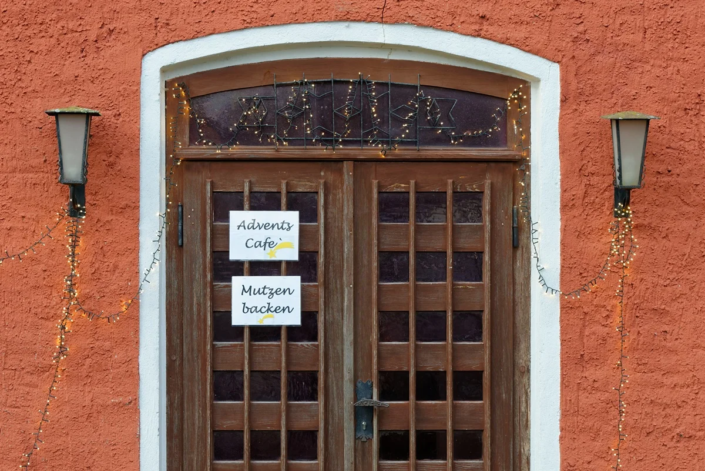 Advents
Cafe`
Mutzen
backen